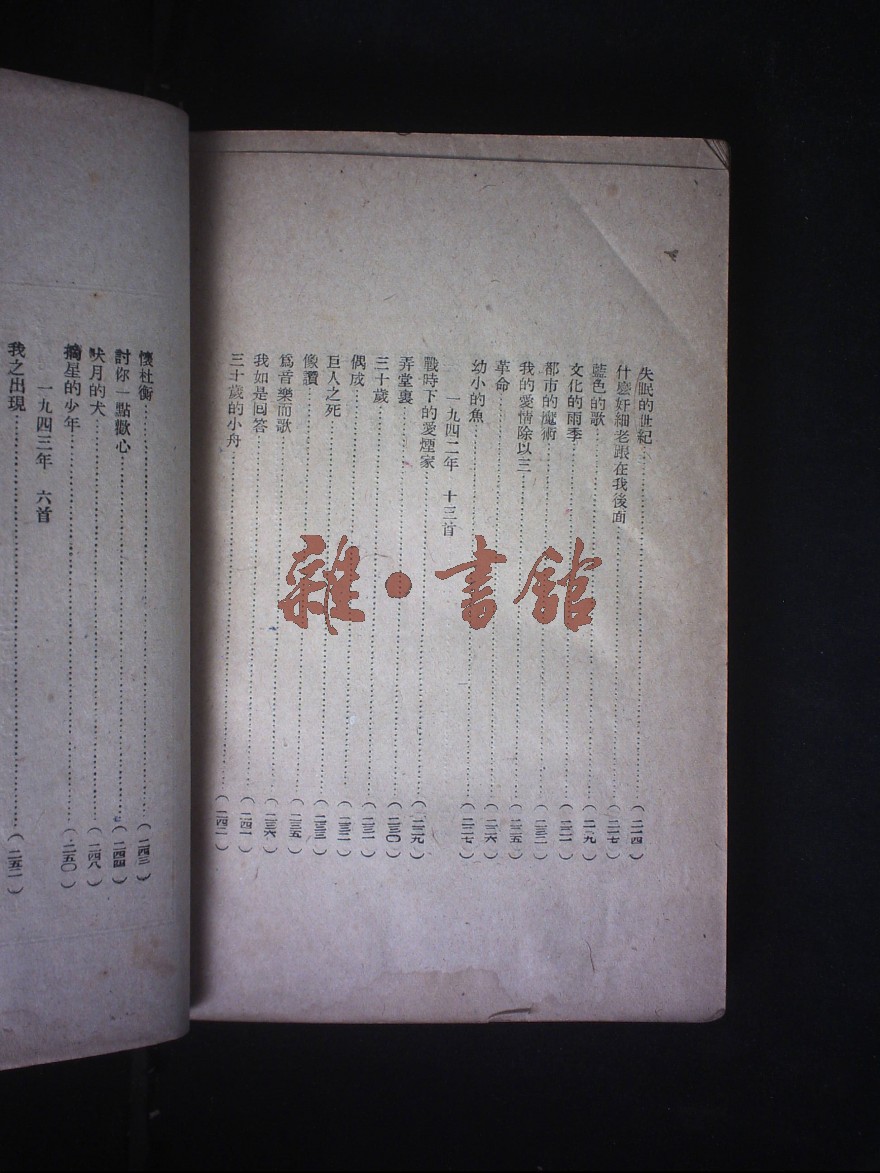 失眠的世紀……（二一四）
什麼奸細老跟在我後面……（二一七）
藍色的歌……（二一九）
文化的雨季……（二二一）
都市的魔術……（二二二）
我的愛情除以三……（二二五）
革命……（二二六）
幼小的魚……（二二七）
一九四二年　十三首
戰時下的愛煙家……（二二九）
弄堂裏……（二三〇）
三十歲……（二三一）
偶成……（二三二）
巨人之死……（二三三）
像讚……（二三五）
爲音樂而歌……（二三六）
我如是回答……（二四一）
三十歲的小舟……（二四二）
懷杜衡……（二四三）
討你一點歡心……（二四四）
吠月的犬……（二四八）
摘星的少年……（二五〇）
一九四三年　六首
我之出現……（二五二）
雜·書館